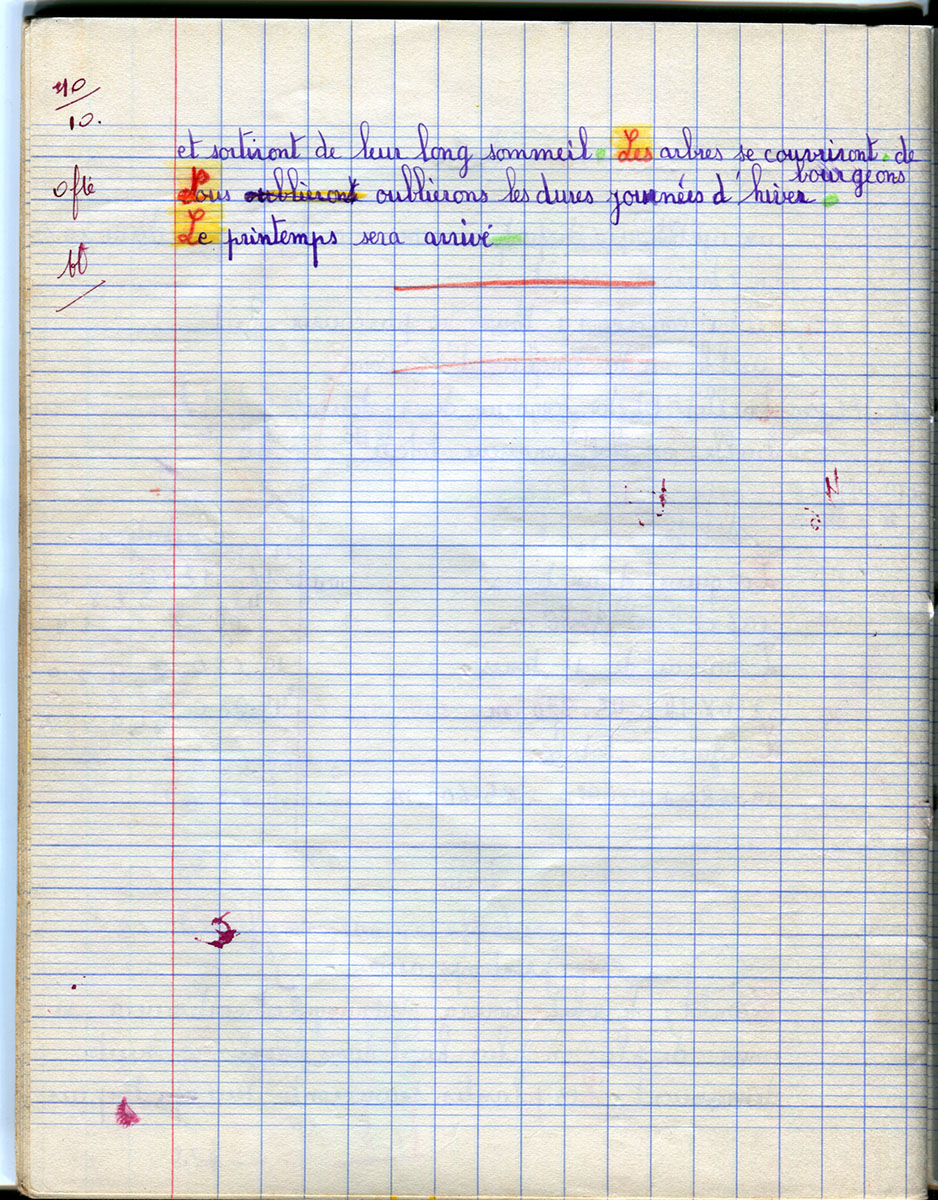 10
10.
et sortiront de leur long sommeil. Les arbres se couvriront. de
bourgeons
0 fte
Nous oublieront oublierons les dures journées d'hiver.
Le printemps sera arrivé
bt